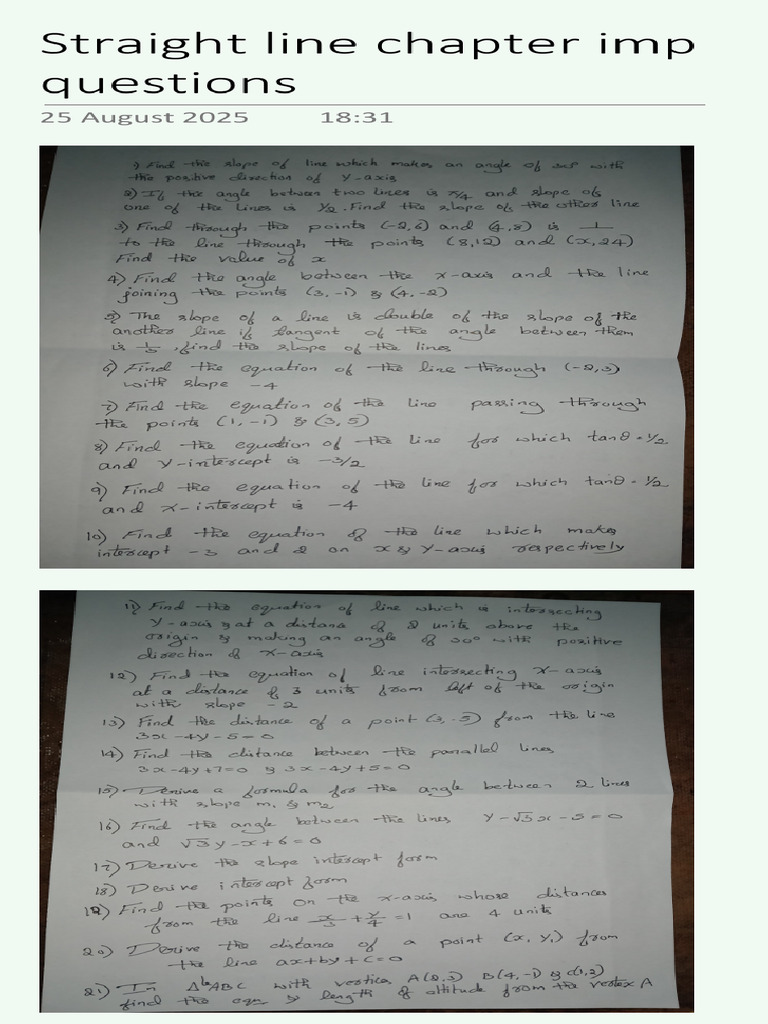 Straight line chapter imp
questions
25 August 2025 18:31
1) Find the slope of line which makes an angle of 30° with
the positive direction of Y-axis
2) If the angle between two lines is π/4 and slope of
one of the lines is 1/2. Find the slope of the other line
3) Find through the points (-2,6) and (4,8) is ⊥
to the line through the points (8,12) and (x,24)
Find the value of x
4) Find the angle between the x-axis and the line
joining the points (3,-1) & (4,-2)
5) The slope of a line is double of the slope of the
another line if tangent of the angle between them
is 1/3, find the slope of the lines
6) Find the equation of the line through (-2,3)
with slope -4
7) Find the equation of the line passing through
the points (1,-1) & (3,5)
8) Find the equation of the line for which tanθ = 1/2
and Y-intercept is -3/2
9) Find the equation of the line for which tanθ = 1/2
and x-intercept is -4
10) Find the equation of the line which makes
intercept -3 and 2 on x & Y-axis respectively
11) Find the equation of line which is intersecting
Y-axis & at a distance of 2 units above the
origin & making an angle of 30° with positive
direction of X-axis
12) Find the equation of line intersecting X-axis
at a distance of 3 units from left of the origin
with slope -2
13) Find the distance of a point (3,-5) from the line
3x-4y-5=0
14) Find the distance between the parallel lines
3x-4y+7=0 & 3x-4y+5=0
15) Derive a formula for the angle between 2 lines
with slope m₁ & m₂
16) Find the angle between the lines y-√3x-5=0
and √3y-x+6=0
17) Derive the slope intercept form
18) Derive intercept form
19) Find the points on the x-axis whose distances
from the line x/3+y/4=1 are 4 units
20) Derive the distance of a point (x, y,) from
the line ax+by+c=0
21) In Δle ABC with vertices A(2,3) B(4,-1) & C(1,2)
find the eqn & length of altitude from the vertex A